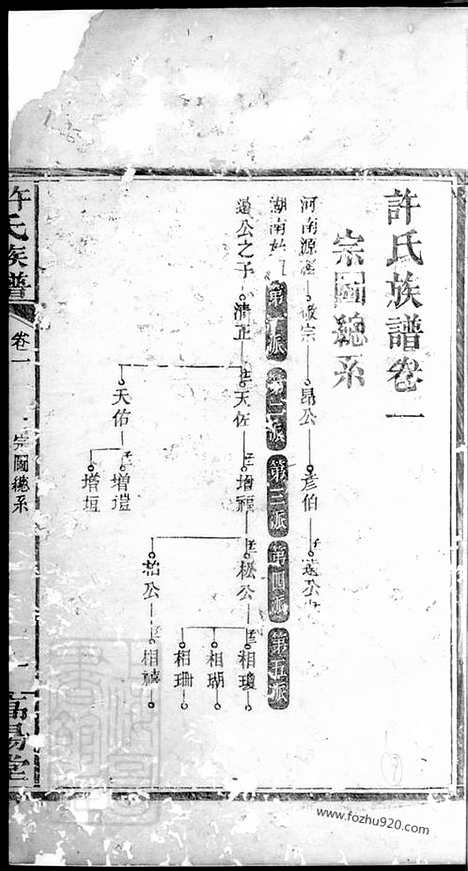 許氏族譜卷一
宗圖總系
河南源 宗 昂公 彥伯 遠公
湖南 第一派 第二派 第三派 第四派 第五派
遠公之子 清正 天佐 增 松公 相瓊
相瑚
相珊
柏公 相
天佑 增塏
增垣
許氏族譜 卷一 宗圖總系 一 高陽堂
www.fozhu920.com